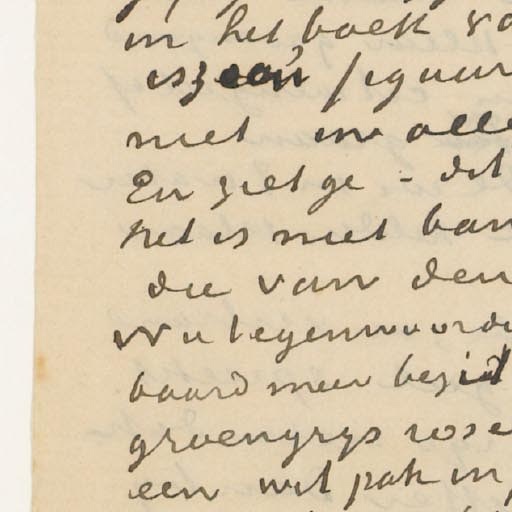 in het boek va
is zoo'n figuur
niet in alle
En ziet ge - dit
het is niet ban
die van den
Nu tegenwoordi
baard meer bezit
groengrys rose
een wit pak in